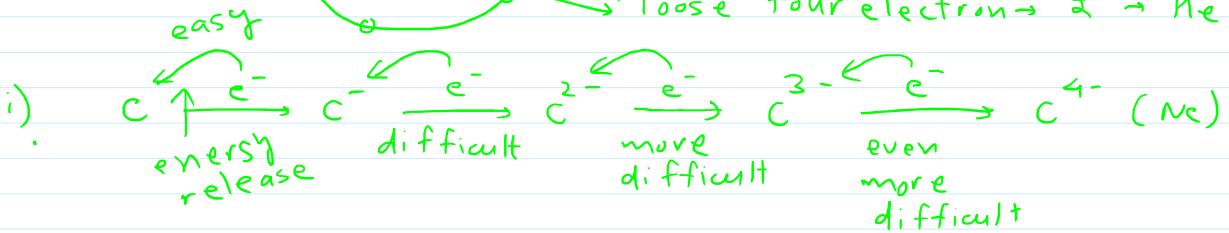 loose four electron → 2 → He
easy
i) C e⁻ → C⁻ e⁻ → C²⁻ e⁻ → C³⁻ e⁻ → C⁴⁻ (Ne)
energy release difficult more difficult even more difficult